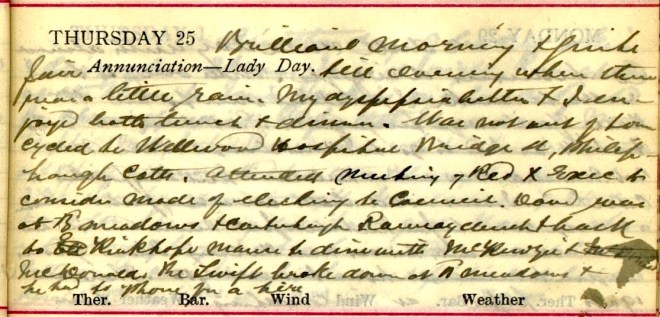 THURSDAY 25 Brilliant morning & quite
fair Annunciation—Lady Day. till evening when there
was a little rain. My dyspepsia better & I en-
joyed both lunch & dinner. Was not out of town
cycled to Wellwood Hospital Bridge St, Philip-
haugh Cotts. Attended meeting of Red X Exec to
consider mode of electing the Council. was
at B meadows & & back
to Kirkhope Manse to dine with McKenzie &
McDonald the Swift broke down at B meadows &
he had to phone for a hire
Ther. Bar. Wind Weather